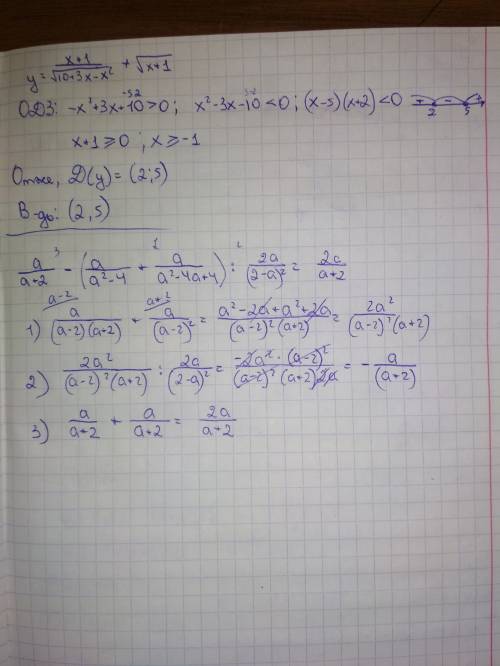 y = \frac{x+1}{\sqrt{10+3x-x²}} + \sqrt{x+1}
-5 2
ОДЗ: -x²+3x+10>0; x²-3x-10<0; (x-5)(x+2)<0 + - + 2 5
x+1≥0, x≥-1
Отже, D(y) = (2;5)
В-дь: (2,5)
3 1 2
\frac{a}{a+2} - (\frac{a}{a²-4} + \frac{a}{a²-4a+4}) : \frac{2a}{(2-a)²} = \frac{2a}{a+2}
a-2 a+2
1) \frac{a}{(a-2)(a+2)} + \frac{a}{(a-2)²} = \frac{a²-2a+a²+2a}{(a-2)²(a+2)} = \frac{2a²}{(a-2)²(a+2)}
2) \frac{2a²}{(a-2)²(a+2)} : \frac{2a}{(2-a)²} = \frac{-2a²·(a-2)²}{(a-2)²(a+2)2a} = -\frac{a}{(a+2)}
3) \frac{a}{a+2} + \frac{a}{a+2} = \frac{2a}{a+2}